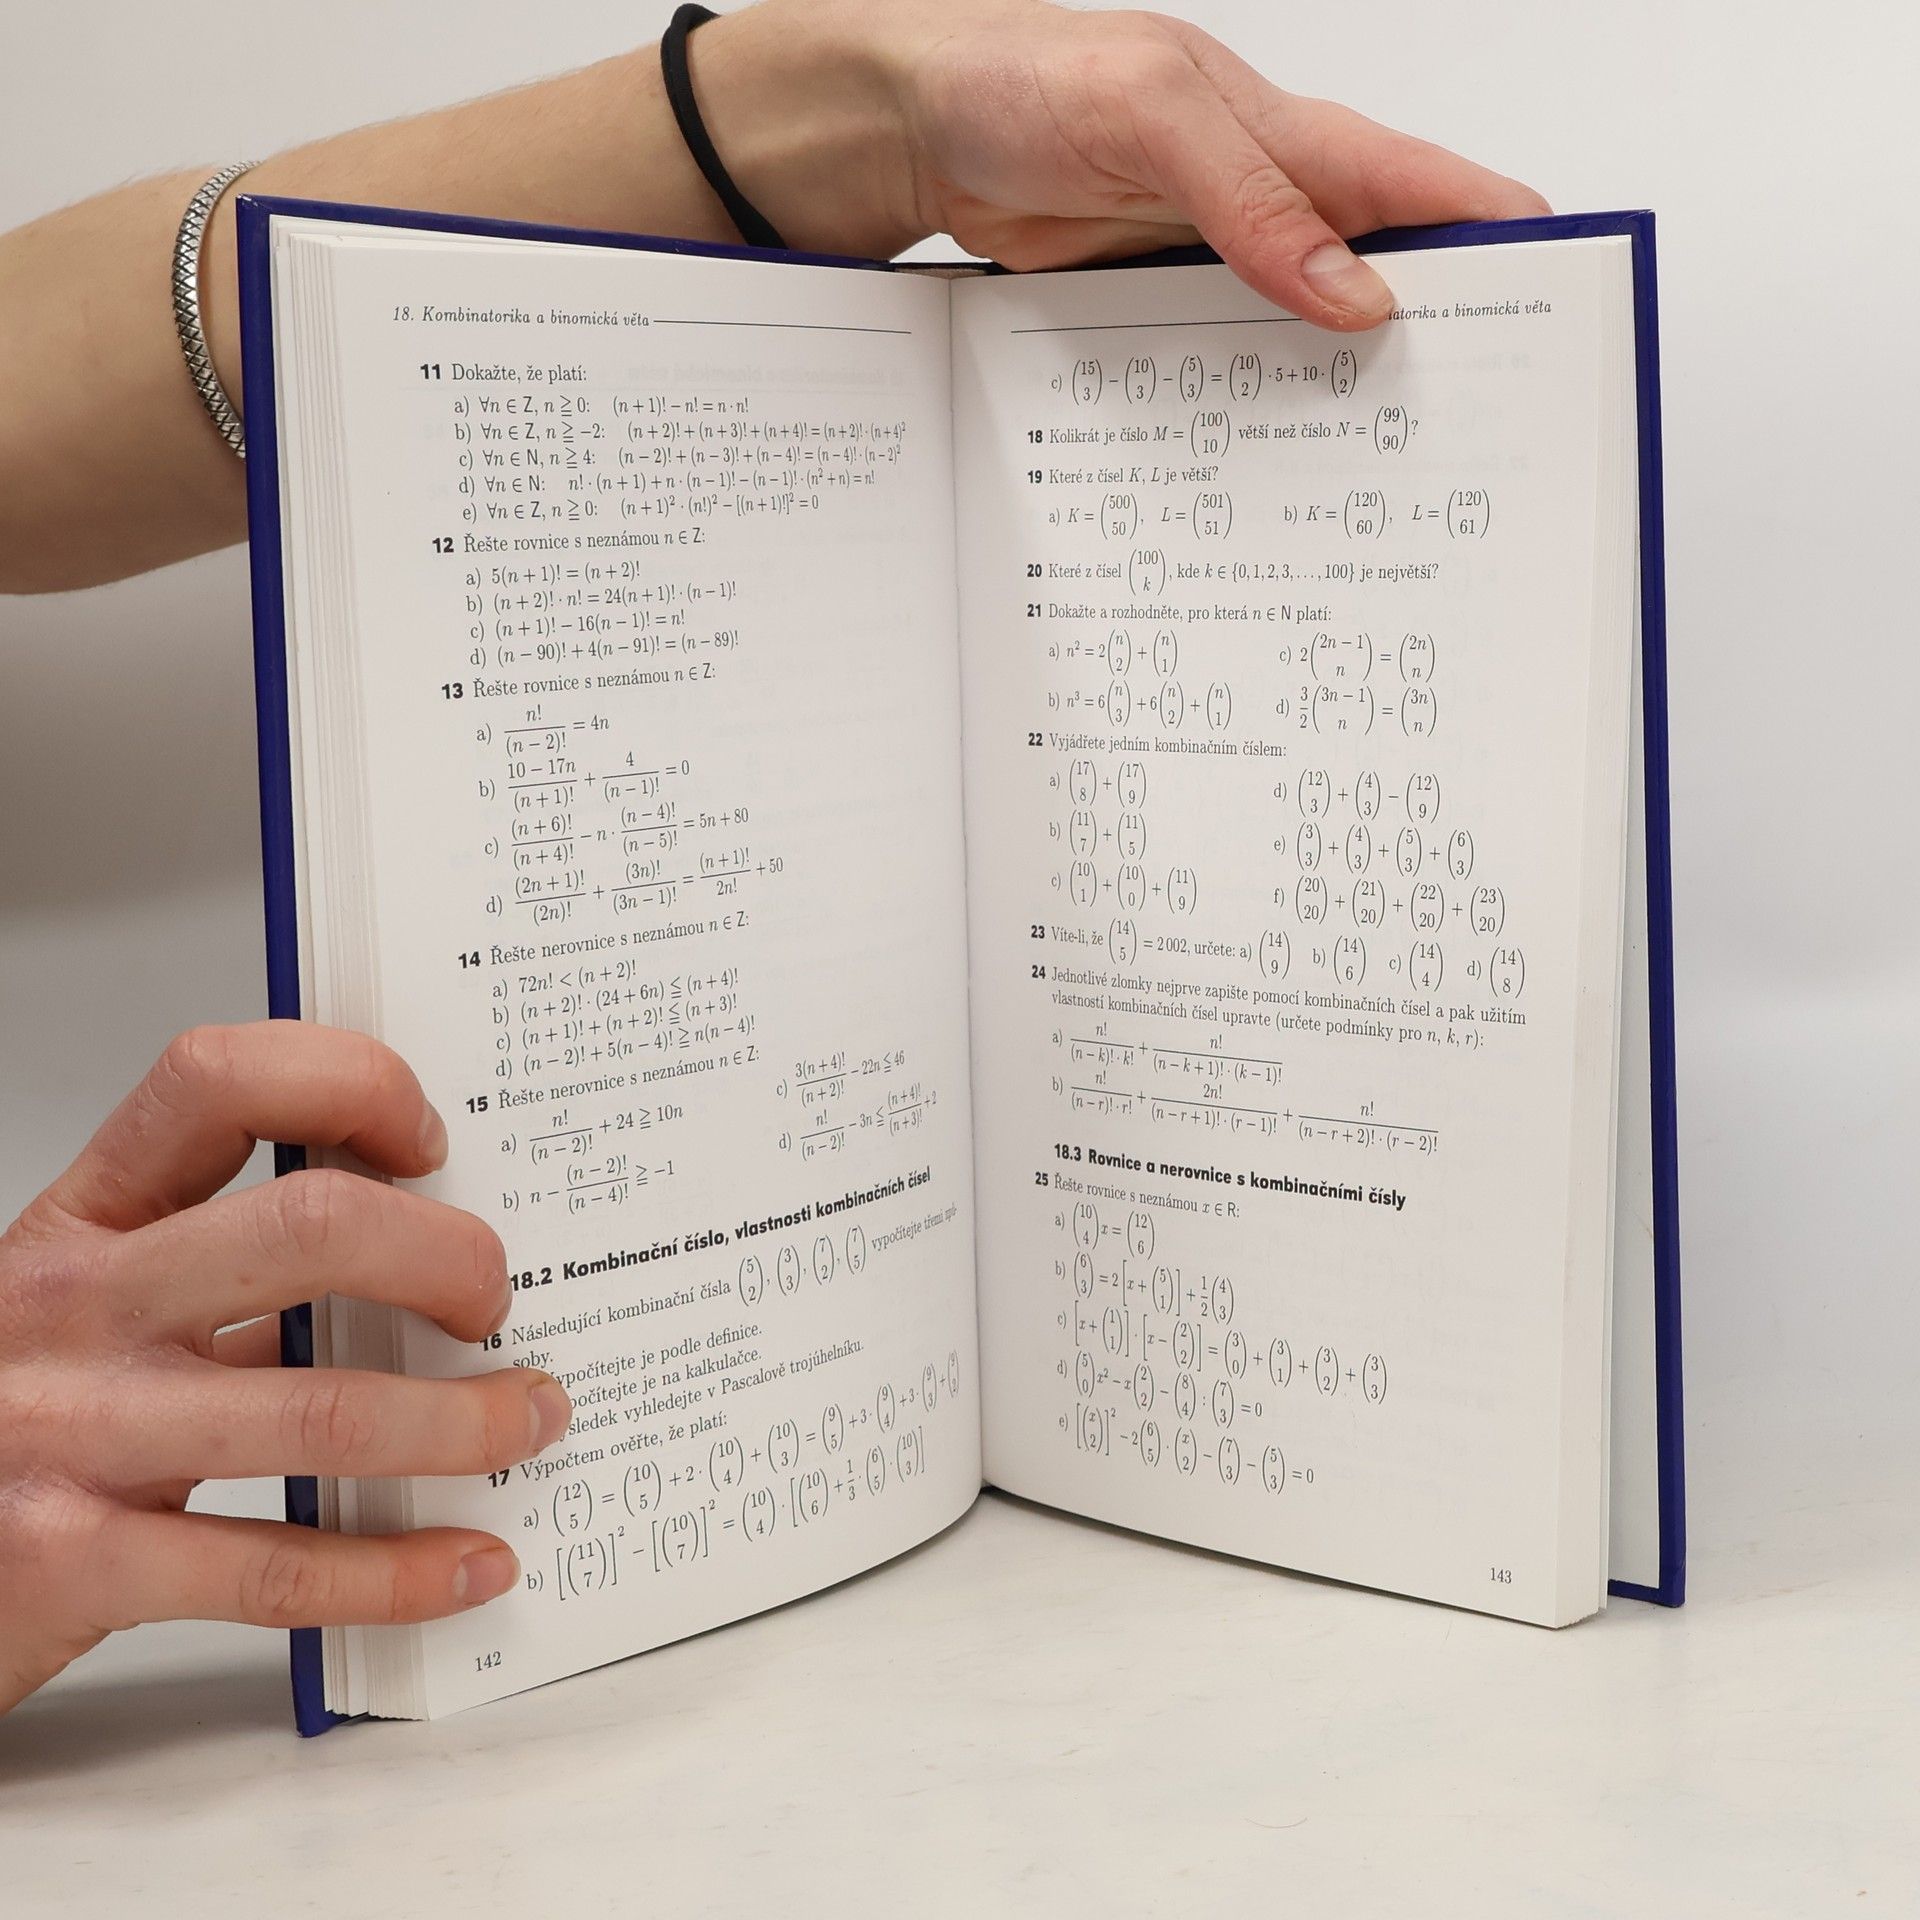 18. Kombinatorika a binomická věta
11 Dokažte, že platí:
a) ∀n ∈ Z, n ≧ 0: (n + 1)! − n! = n · n!
b) ∀n ∈ Z, n ≧ −2: (n + 2)! + (n + 3)! + (n + 4)! = (n + 2)! · (n + 4)²
c) ∀n ∈ N, n ≧ 4: (n − 2)! + (n − 3)! + (n − 4)! = (n − 4)! · (n − 2)²
d) ∀n ∈ N: n! · (n + 1) + n · (n − 1)! − (n − 1)! · (n² + n) = n!
e) ∀n ∈ Z, n ≧ 0: (n + 1)² · (n!)² − [(n + 1)!]² = 0
12 Řešte rovnice s neznámou n ∈ Z:
a) 5(n + 1)! = (n + 2)!
b) (n + 2)! · n! = 24(n + 1)! · (n − 1)!
c) (n + 1)! − 16(n − 1)! = n!
d) (n − 90)! + 4(n − 91)! = (n − 89)!
13 Řešte rovnice s neznámou n ∈ Z:
a) n!/(n − 2)! = 4n
b) (10 − 17n)/(n + 1)! + 4/(n − 1)! = 0
c) (n + 6)!/(n + 4)! − n · (n − 4)!/(n − 5)! = 5n + 80
d) (2n + 1)!/(2n)! + (3n)!/(3n − 1)! = (n + 1)!/2n! + 50
14 Řešte nerovnice s neznámou n ∈ Z:
a) 72n! < (n + 2)!
b) (n + 2)! · (24 + 6n) ≦ (n + 4)!
c) (n + 1)! + (n + 2)! ≦ (n + 3)!
d) (n − 2)! + 5(n − 4)! ≧ n(n − 4)!
15 Řešte nerovnice s neznámou n ∈ Z:
a) n!/(n − 2)! + 24 ≧ 10n
b) n − (n − 2)!/(n − 4)! ≧ −1
c) 3(n + 4)!/(n + 2)! − 22n ≦ 46
d) n!/(n − 2)! − 3n ≦ (n + 4)!/(n + 3)! + 2
18.2 Kombinační číslo, vlastnosti kombinačních čísel
16 Následující kombinační čísla (5 2), (3 3), (7 2), (7 5) vypočítejte třemi způ-
soby.
vypočítejte je podle definice.
počítejte je na kalkulačce.
sledek vyhledejte v Pascalově trojúhelníku.
17 Výpočtem ověřte, že platí:
a) (12 5) = (10 5) + 2 · (10 4) + (10 3) = (9 5) + 3 · (9 4) + 3 · (9 3) + (9 2)
b) [(11 7)]² − [(10 7)]² = (10 4) · [(10 6) + 1/3 · (6 5) · (10 3)]
142
atorika a binomická věta
c) (15 3) − (10 3) − (5 3) = (10 2) · 5 + 10 · (5 2)
18 Kolikrát je číslo M = (100 10) větší než číslo N = (99 90)?
19 Které z čísel K, L je větší?
a) K = (500 50), L = (501 51) b) K = (120 60), L = (120 61)
20 Které z čísel (100 k), kde k ∈ {0, 1, 2, 3, …, 100} je největší?
21 Dokažte a rozhodněte, pro která n ∈ N platí:
a) n² = 2(n 2) + (n 1) c) 2(2n − 1 n) = (2n n)
b) n³ = 6(n 3) + 6(n 2) + (n 1) d) 3/2(3n − 1 n) = (3n n)
22 Vyjádřete jedním kombinačním číslem:
a) (17 8) + (17 9) d) (12 3) + (4 3) − (12 9)
b) (11 7) + (11 5) e) (3 3) + (4 3) + (5 3) + (6 3)
c) (10 1) + (10 0) + (11 9) f) (20 20) + (21 20) + (22 20) + (23 20)
23 Víte-li, že (14 5) = 2 002, určete: a) (14 9) b) (14 6) c) (14 4) d) (14 8)
24 Jednotlivé zlomky nejprve zapište pomocí kombinačních čísel a pak užitím
vlastností kombinačních čísel upravte (určete podmínky pro n, k, r):
a) n!/((n − k)! · k!) + n!/((n − k + 1)! · (k − 1)!)
b) n!/((n − r)! · r!) + 2n!/((n − r + 1)! · (r − 1)!) + n!/((n − r + 2)! · (r − 2)!)
18.3 Rovnice a nerovnice s kombinačními čísly
25 Řešte rovnice s neznámou x ∈ R:
a) (10 4)x = (12 6)
b) (6 3) = 2[x + (5 1)] + 1/2(4 3)
c) [x + (1 1)] · [x − (2 2)] = (3 0) + (3 1) + (3 2) + (3 3)
d) (5 0)x² − x(2 2) − (8 4) : (7 3) = 0
e) [(x 2)]² − 2(6 5) · (x 2) − (7 3) − (5 3) = 0
143